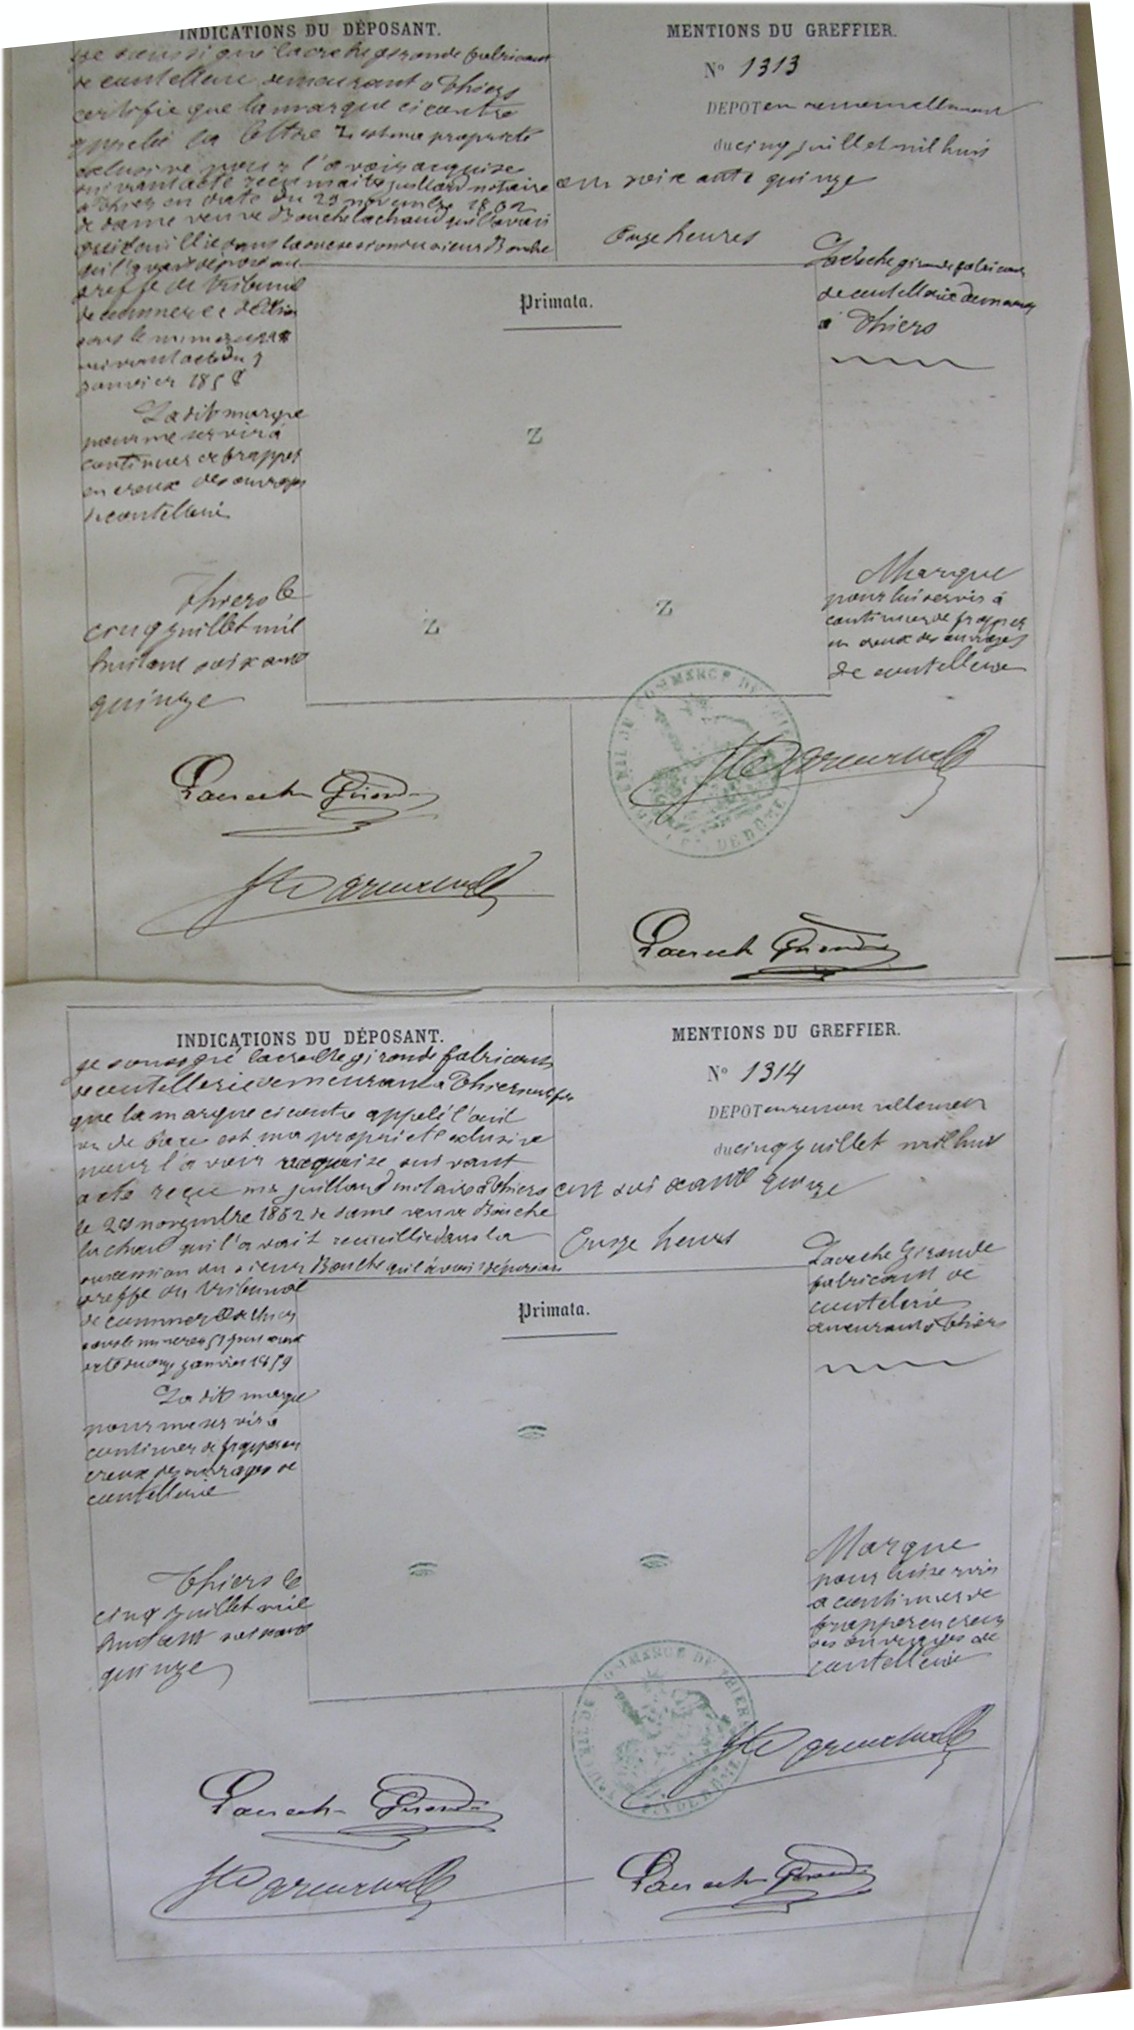 INDICATIONS DU DÉPOSANT.
je soussigné Laroche gironde fabricant
de coutellerie demeurant a Thiers
certifie que la marque ci contre
appelée la lettre Z est ma propriété
exclusive pour l'avoir acquise
suivant acte reçu maitre juillard notaire
a Thiers en date du 29 novembre 1862
de dame veuve Bouche lachaud qu'il avait
recueillie dans la succession du sieur Bouche
qu'il avait déposé au
greffe du tribunal
de commerce de Thiers
sous le numero
suivant acte du 7
janvier 1858
La dit marque
pour me servir à
continuer de frapper
en creux des ouvrages
de coutellerie
Thiers le
cinq juillet mil
huit cent soixante
quinze
Laroche Gironde
MENTIONS DU GREFFIER.
No 1313
DEPOT en renouvellement
du cinq juillet mil huit
cent soixante quinze
Onze heures
Laroche gironde fabricant
de coutellerie demeurant
à Thiers
Primata.
Z
Z
Z
Marque
pour lui servir à
continuer de frapper
en creux des ouvrages
de coutellerie
TRIBUNAL DE COMMERCE DE THIERS
PUY DE DÔME
Laroche Gironde
INDICATIONS DU DÉPOSANT.
je soussigné laroche gironde fabricant
de coutellerie demeurant a Thiers certifie
que la marque ci contre appelé l'œuil
vu de face est ma propriété exclusive
pour l'avoir acquise suivant
acte reçu me juillard notaire a Thiers
le 29 novembre 1862 de dame veuve Bouche
lachaud qu'il avait recueillie dans la
succession du sieur Bouche qu'il avait déposé au
greffe du tribunal
de commerce de Thiers
sous le numero suivant
acte du onze janvier 1859
La dit marque
pour me servir a
continuer de frapper en
creux des ouvrages de
coutellerie
Thiers le
cinq juillet mil
huit cent soixante
quinze
Laroche Gironde
MENTIONS DU GREFFIER.
No 1314
DEPOT en renouvellement
du cinq juillet mil huit
cent soixante quinze
Onze heures
Laroche Gironde
fabricant de
coutelerie
demeurant a Thiers
Primata.
Marque
pour lui servir
a continuer de
frapper en creux
des ouvrages de
coutellerie
TRIBUNAL DE COMMERCE DE THIERS
PUY DE DÔME
Laroche Gironde